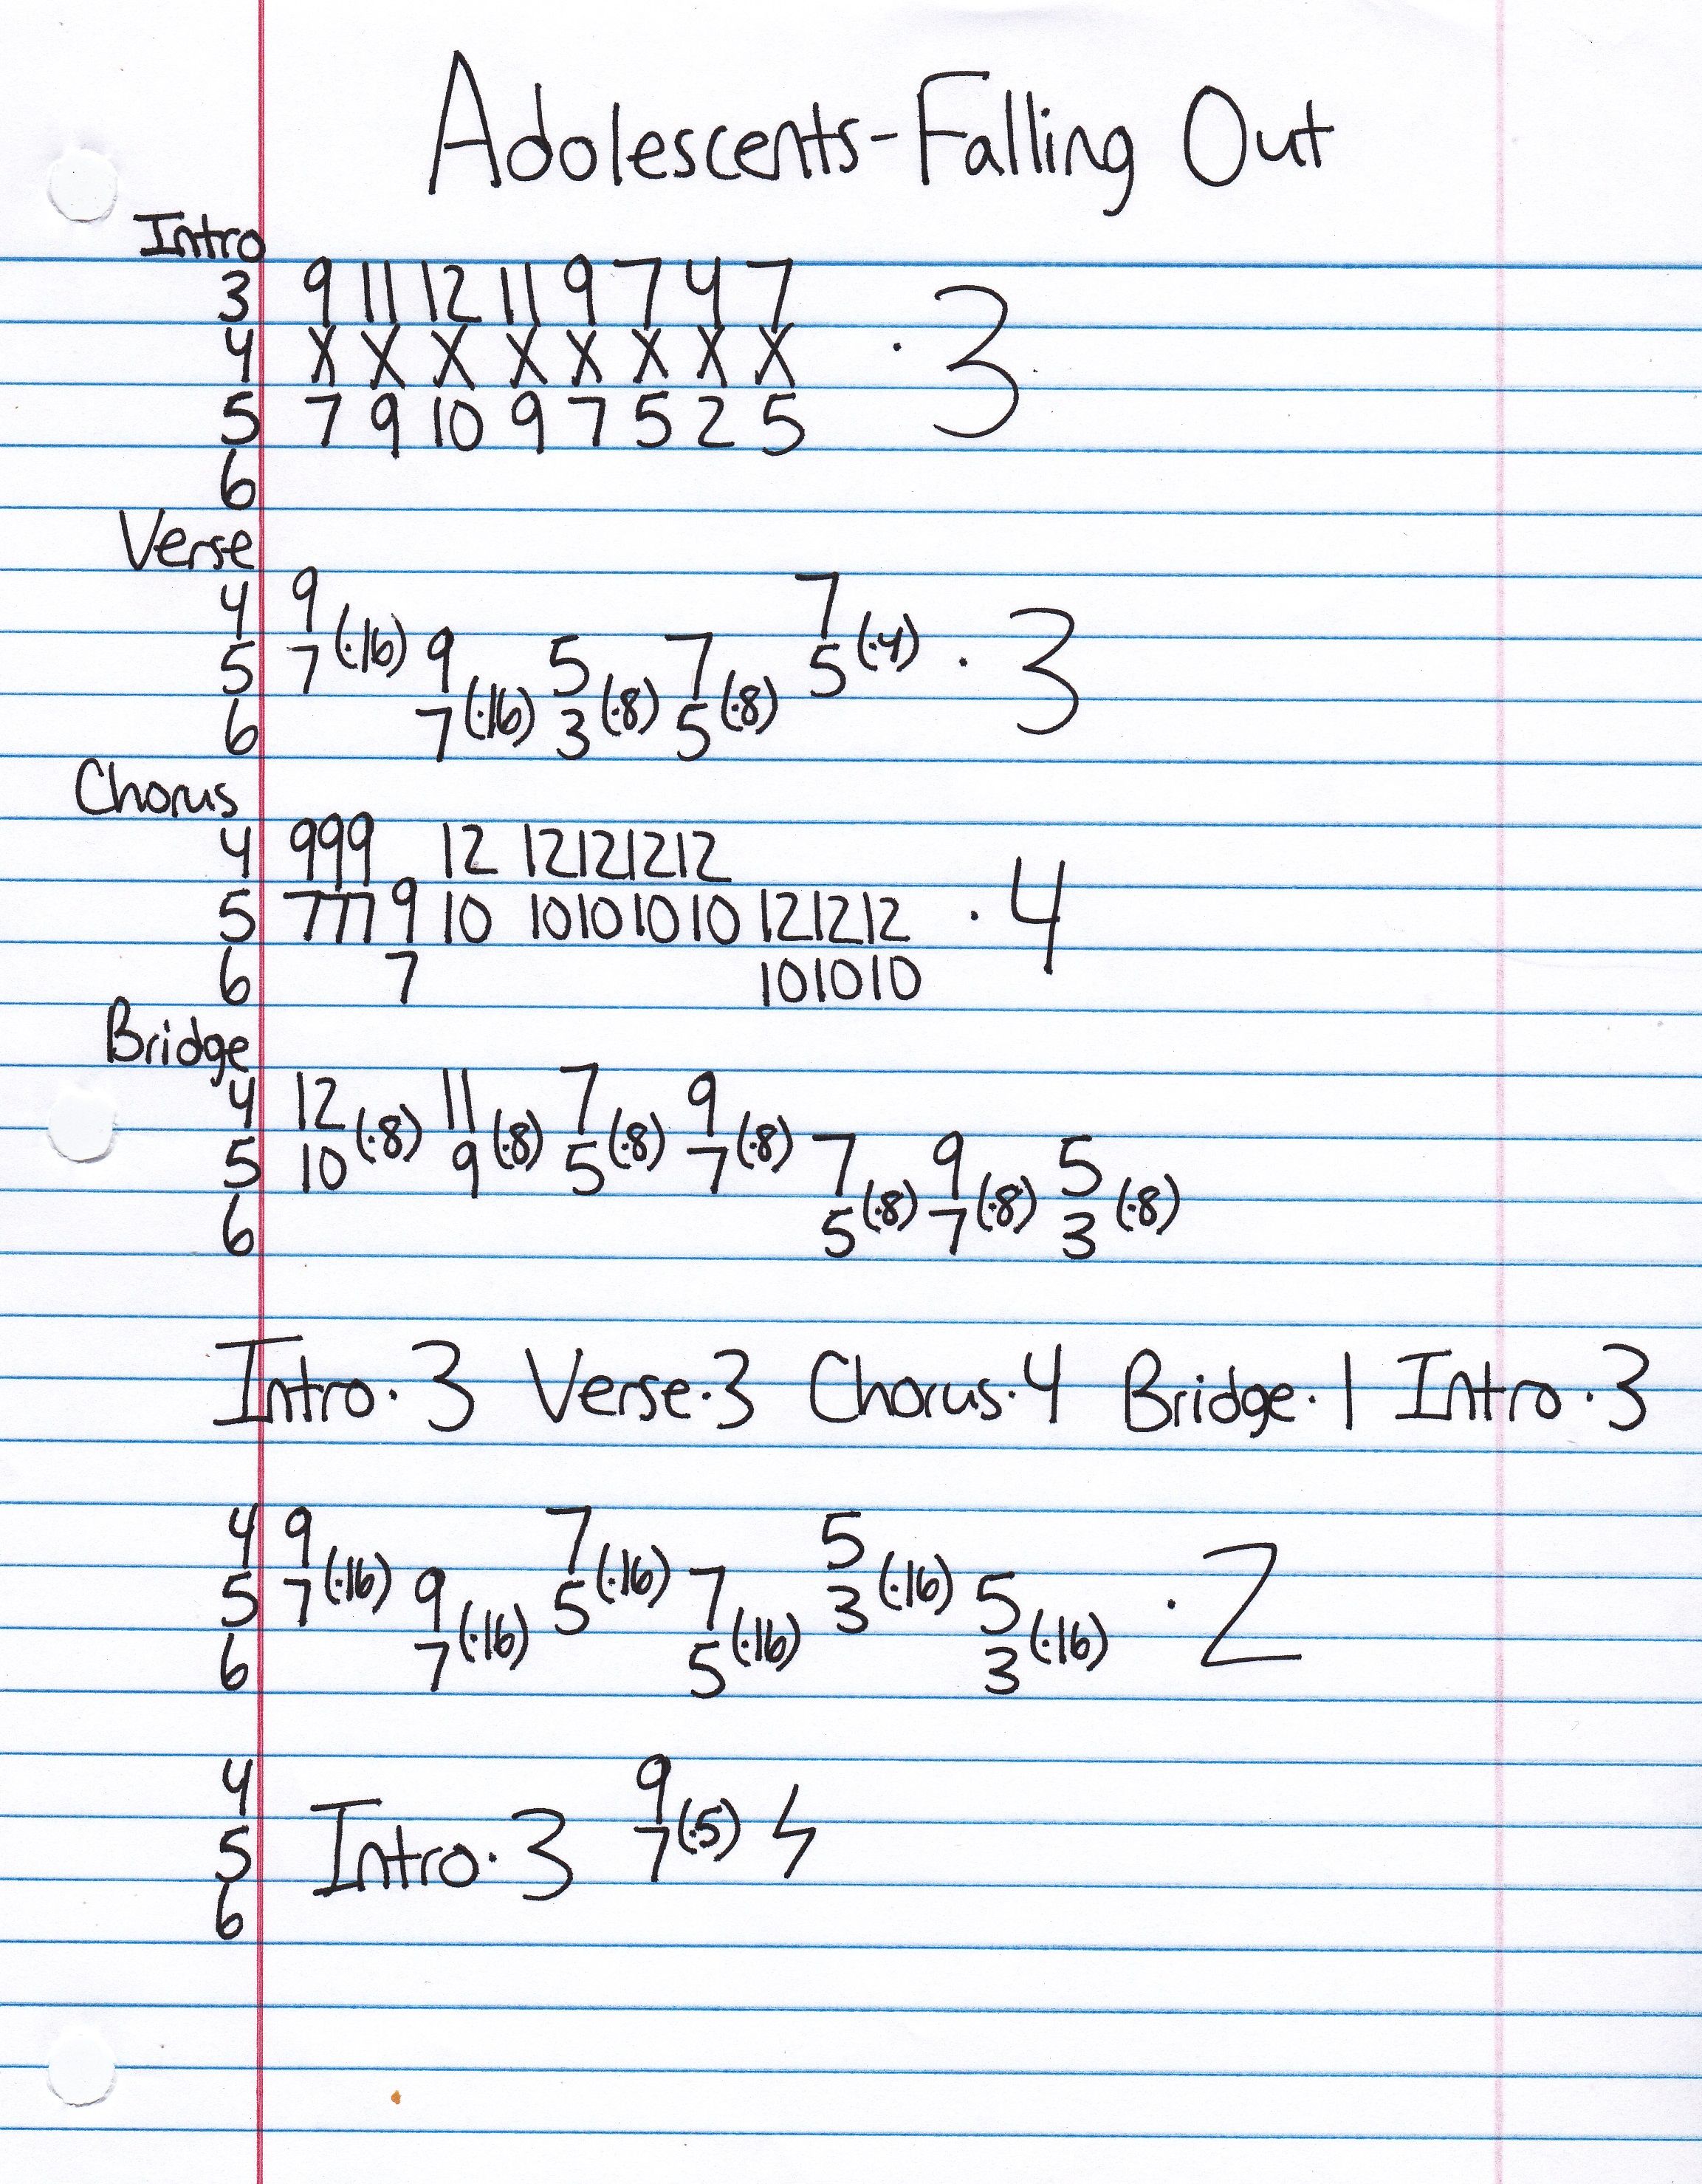 Adolescents-Falling Out
Intro
3 9 11 12 11 9 7 4 7
4 X X X X X X X X ·3
5 7 9 10 9 7 5 2 5
6
Verse
4 9 7
5 7 (·16) 9 5 7 5 (·4) ·3
6 7 (·16) 3 (·8) 5 (·8)
Chorus
4 999 12 12121212
5 777 9 10 10101010 121212 ·4
6 7 101010
Bridge
4 12 11 7 9
5 10 (·8) 9 (·8) 5 (·8) 7 (·8) 7 9 5
6 5 (·8) 7 (·8) 3 (·8)
Intro·3 Verse·3 Chorus·4 Bridge·1 Intro·3
4 9 7 5
5 7 (·16) 9 5 (·16) 7 3 (·16) 5 ·2
6 7 (·16) 5 (·16) 3 (·16)
4 9
5 Intro·3 7 (·5) ϟ
6